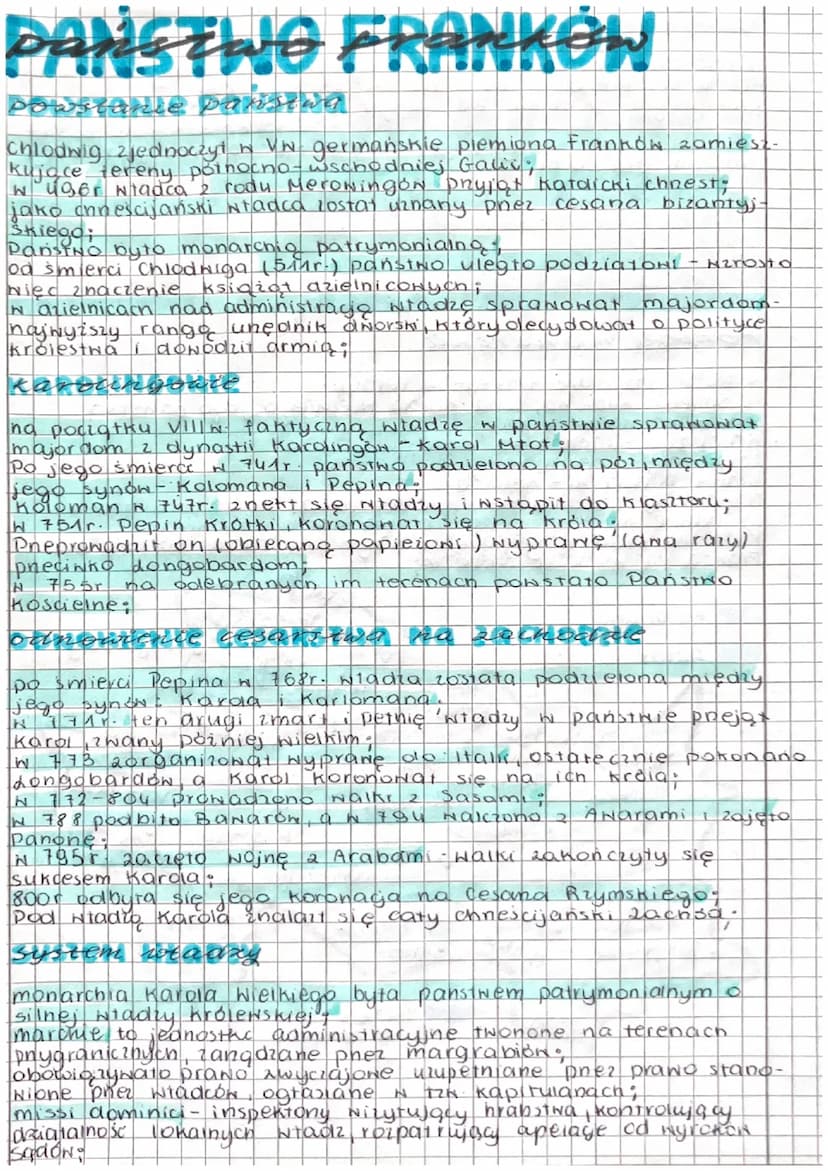 PAŃSTWO FRANKÓW
powstanie państwa
Chlodwig zjednoczył w VW germańskie plemiona Franków zamiesz-
kujące tereny północno-wschodniej Galii;
w 496r władca z rodu Merowingów przyjął katolicki chrzest;
jako chrześcijański władca został uznany przez cesarza bizantyj-
skiego;
Państwo było monarchią patrymonialną;
od śmierci Chlodwiga (511r.) państwo uległo podziałowi - wzrosło
więc znaczenie książąt dzielnicowych;
w dzielnicach nad administracją władzę sprawował majordom-
najwyższy rangą urzędnik dworski, który decydował o polityce
królestwa i dowodził armią;
Karolingowie
na początku VIIIw. faktyczną władzę w państwie sprawował
majordom z dynastii Karolingów - Karol Młot;
Po jego śmierci w 741r. państwo podzielono na pół, między
jego synów - Kolomana i Pepina;
Koloman w 747r. zrzekł się władzy i wstąpił do klasztoru;
w 751r. Pepin Krótki koronował się na króla;
Przeprowadził on (obiecaną papieżowi) wyprawę (dwa razy)
przeciwko Longobardom;
w 755r na odebranych im terenach powstało Państwo
Kościelne;
odnowienie cesarstwa na zachodzie
po śmierci Pepina w 768r. władza została podzielona między
jego synów: Karola i Karlomana;
w 771r. ten drugi zmarł i pełnię władzy w państwie przejął
Karol, zwany później Wielkim;
w 773 zorganizował wyprawę do Italii, ostatecznie pokonano
Longobardów, a Karol koronował się na ich króla;
w 772-804 prowadzono walki z Sasami;
w 788 podbito Bawarów, a w 794 walczono z Awarami i zajęto
Panonę;
w 795r. zaczęto wojnę z Arabami - walki zakończyły się
sukcesem Karola;
800r odbyła się jego koronacja na Cesarza Rzymskiego;
Pod władzą Karola znalazł się cały chrześcijański zachód;
system władzy
monarchia Karola Wielkiego była państwem patrymonialnym o
silnej władzy królewskiej;
marchie to jednostki administracyjne tworzone na terenach
przygranicznych, zarządzane przez margrabiów;
obowiązywało prawo zwyczajowe uzupełniane przez prawo stano-
wione przez władców, ogłaszane w tzw. kapitularzach;
missi dominici - inspektorzy wizytujący hrabstwa, kontrolujący
działalność lokalnych władz, rozpatrujący apelacje od wyroków
sądów;